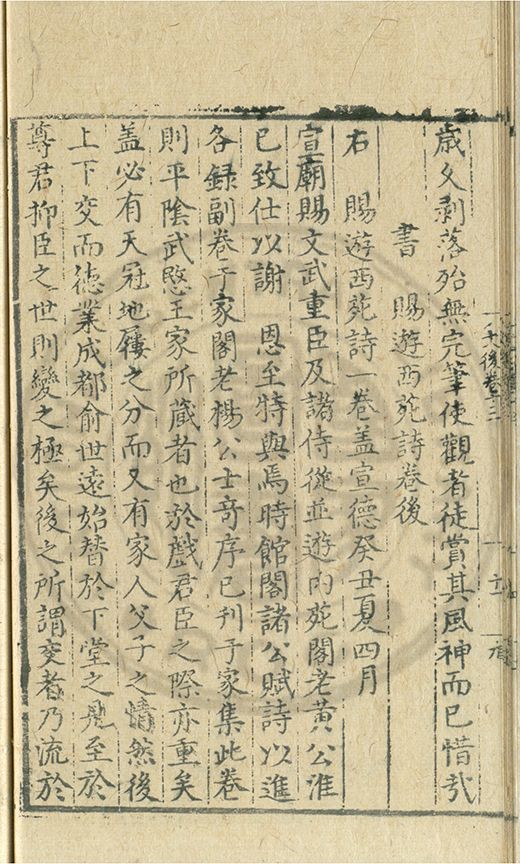 歲久剥落殆無完筆使觀者徒賞其風神而已惜哉
書　賜遊西苑詩卷後
右　賜遊西苑詩一卷盖宣德癸丑夏四月
宣廟賜文武重臣及諸侍從並遊内苑閣老黄公淮
已致仕以謝　恩至特與焉時館閣諸公賦詩以進
各録副卷于家閣老楊公士竒序已刊于家集此卷
則平隂武愍王家所蔵者也於戲君臣之際亦重矣
盖必有天冠地屨之分而又有家人父子之情然後
上下交而徳業成都俞世遠始替於下堂之見至於
尊君抑臣之世則變之極矣後之所謂交者乃流於